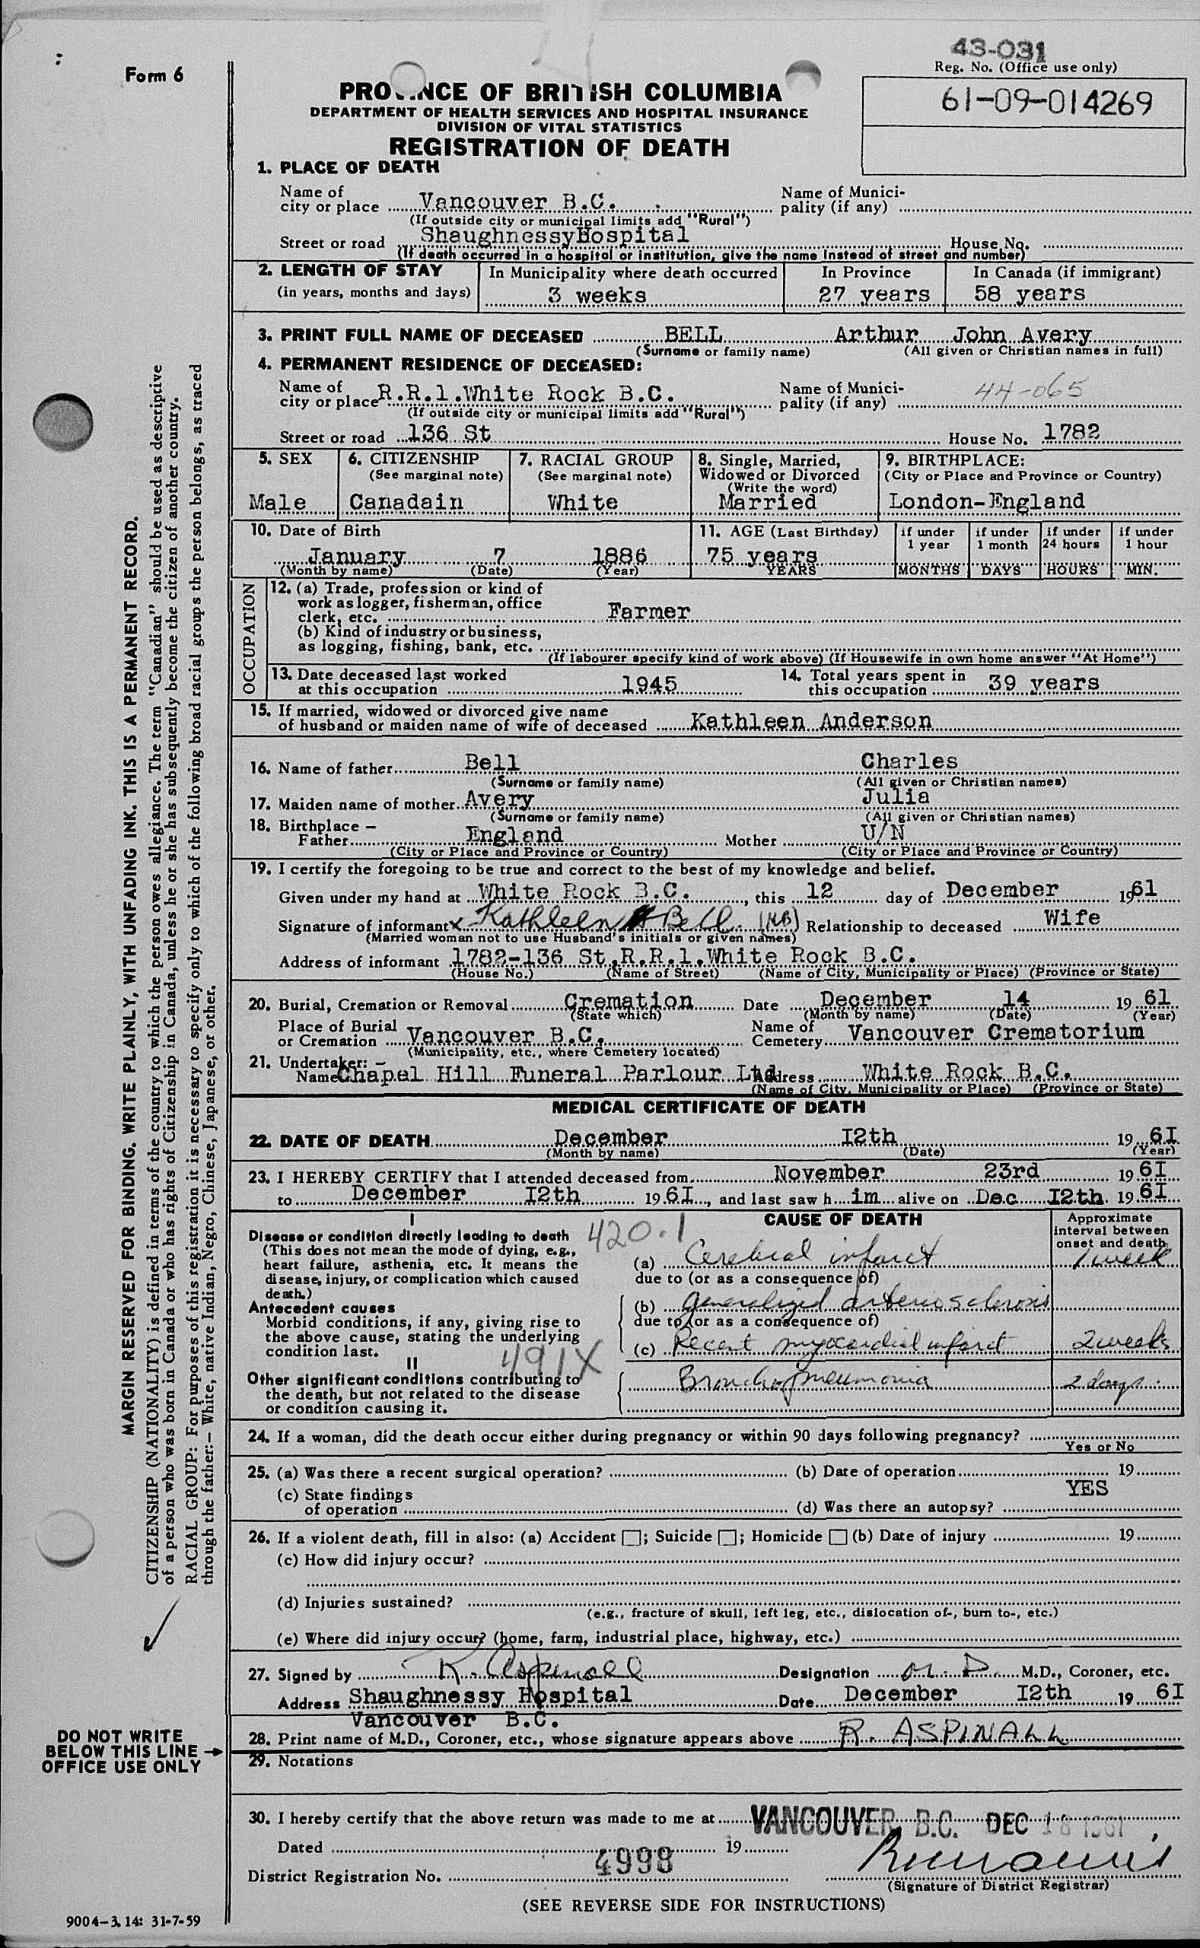 43-031
Form 6
Reg. No. (Office use only)
61-09-014269
PROVINCE OF BRITISH COLUMBIA
DEPARTMENT OF HEALTH SERVICES AND HOSPITAL INSURANCE
DIVISION OF VITAL STATISTICS
REGISTRATION OF DEATH
1. PLACE OF DEATH
Name of city or place Vancouver B.C. Name of Municipality (if any)
(If outside city or municipal limits add "Rural")
Street or road Shaughnessy Hospital House No.
(If death occurred in a hospital or institution, give the name instead of street and number)
2. LENGTH OF STAY In Municipality where death occurred In Province In Canada (if immigrant)
(in years, months and days) 3 weeks 27 years 58 years
3. PRINT FULL NAME OF DECEASED BELL Arthur John Avery
(Surname or family name) (All given or Christian names in full)
4. PERMANENT RESIDENCE OF DECEASED:
Name of city or place R.R.1.White Rock B.C. Name of Municipality (if any) 44-065
(If outside city or municipal limits add "Rural")
Street or road 136 St House No. 1782
5. SEX 6. CITIZENSHIP 7. RACIAL GROUP 8. Single, Married, Widowed or Divorced 9. BIRTHPLACE:
(See marginal note) (See marginal note) (Write the word) (City or Place and Province or Country)
Male Canadain White Married London-England
10. Date of Birth 11. AGE (Last Birthday) if under 1 year if under 1 month if under 24 hours if under 1 hour
January 7 1886 75 years
(Month by name) (Date) (Year) YEARS MONTHS DAYS HOURS MIN.
OCCUPATION
12. (a) Trade, profession or kind of work as logger, fisherman, office clerk, etc. Farmer
(b) Kind of industry or business, as logging, fishing, bank, etc.
(If labourer specify kind of work above) (If Housewife in own home answer "At Home")
13. Date deceased last worked at this occupation 1945 14. Total years spent in this occupation 39 years
15. If married, widowed or divorced give name of husband or maiden name of wife of deceased Kathleen Anderson
16. Name of father Bell Charles
(Surname or family name) (All given or Christian names)
17. Maiden name of mother Avery Julia
(Surname or family name) (All given or Christian names)
18. Birthplace – Father England Mother U/N
(City or Place and Province or Country) (City or Place and Province or Country)
19. I certify the foregoing to be true and correct to the best of my knowledge and belief.
Given under my hand at White Rock B.C. , this 12 day of December 1961
Signature of informant x Kathleen A Bell (KB) Relationship to deceased Wife
(Married woman not to use Husband's initials or given names)
Address of informant 1782-136 St.R.R.1.White Rock B.C.
(House No.) (Name of Street) (Name of City, Municipality or Place) (Province or State)
20. Burial, Cremation or Removal Cremation Date December 14 19 61
(State which) (Month by name) (Date) (Year)
Place of Burial or Cremation Vancouver B.C. Name of Cemetery Vancouver Crematorium
(Municipality, etc., where Cemetery located)
21. Undertaker: – Name Chapel Hill Funeral Parlour Ltd Address White Rock B.C.
(Name of City, Municipality or Place) (Province or State)
MEDICAL CERTIFICATE OF DEATH
22. DATE OF DEATH December I2th 19 6I
(Month by name) (Date) (Year)
23. I HEREBY CERTIFY that I attended deceased from November 23rd 19 6I
to December I2th 19 6I, and last saw h im alive on Dec I2th 19 6I
I CAUSE OF DEATH Approximate interval between onset and death
Disease or condition directly leading to death 420.1
(This does not mean the mode of dying, e.g., heart failure, asthenia, etc. It means the disease, injury, or complication which caused death.)
(a) Cerebral infarct 1 week
due to (or as a consequence of)
Antecedent causes
Morbid conditions, if any, giving rise to the above cause, stating the underlying condition last.
(b) Generalized arteriosclerosis
due to (or as a consequence of)
(c) Recent myocardial infarct 2 weeks
II 491X
Other significant conditions contributing to the death, but not related to the disease or condition causing it.
Bronchopneumonia 2 days.
24. If a woman, did the death occur either during pregnancy or within 90 days following pregnancy?
Yes or No
25. (a) Was there a recent surgical operation? (b) Date of operation 19
(c) State findings of operation (d) Was there an autopsy? YES
26. If a violent death, fill in also: (a) Accident ☐; Suicide ☐; Homicide ☐ (b) Date of injury 19
(c) How did injury occur?
(d) Injuries sustained?
(e.g., fracture of skull, left leg, etc., dislocation of-, burn to-, etc.)
(e) Where did injury occur? (home, farm, industrial place, highway, etc.)
27. Signed by R. Aspinall Designation M.D. M.D., Coroner, etc.
Address Shaughnessy Hospital Date December I2th 19 6I
Vancouver B.C.
28. Print name of M.D., Coroner, etc., whose signature appears above R. ASPINALL
29. Notations
30. I hereby certify that the above return was made to me at VANCOUVER, B.C. DEC 18 1961
Dated 19
District Registration No. 4998
(Signature of District Registrar)
(SEE REVERSE SIDE FOR INSTRUCTIONS)
MARGIN RESERVED FOR BINDING. WRITE PLAINLY, WITH UNFADING INK. THIS IS A PERMANENT RECORD.
CITIZENSHIP (NATIONALITY) is defined in terms of the country to which the person owes allegiance. The term "Canadian" should be used as descriptive
of a person who was born in Canada or who has rights of Citizenship in Canada, unless he or she has subsequently become the citizen of another country.
RACIAL GROUP: For purposes of this registration it is necessary to specify only to which of the following broad racial groups the person belongs, as traced
through the father:– White, native Indian, Negro, Chinese, Japanese, or other.
DO NOT WRITE
BELOW THIS LINE →
OFFICE USE ONLY
9004-3.14: 31-7-59